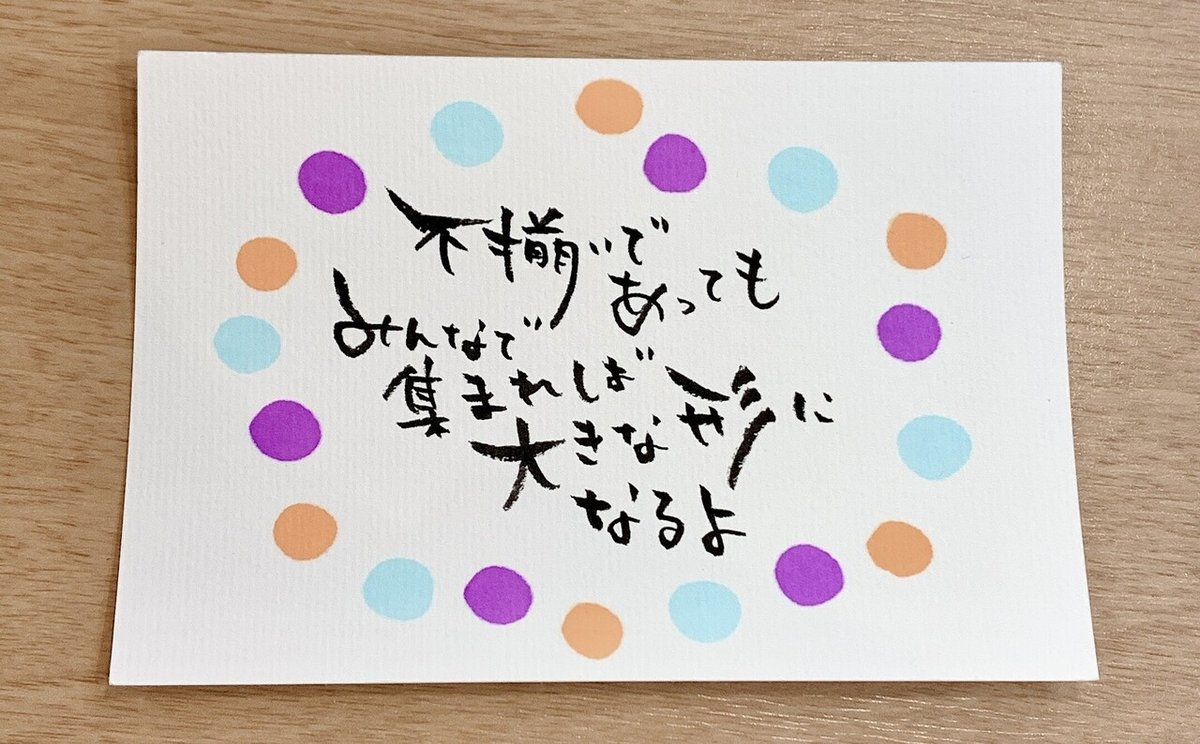 不揃いで
あっても
みんなで
集まれば
大きな形に
なるよ